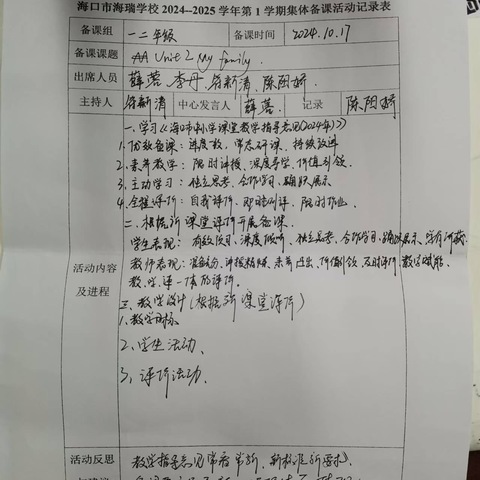 海口市海瑞学校2024--2025学年第1学期集体备课活动记录表
备课组 一二年级 备课时间 2024.10.17
备课课题 AA Unit 2 My family
出席人员 薛蓉、李丹、符新清、陈阳娇
主持人 符新清 中心发言人 薛蓉 记录 陈阳娇
活动内容及进程
一、学习《海口市中小学课堂教学指导意见(2024年)》
1. 优效备课：进度教、常态研课、持续改进
2. 素养教学：限时讲授、深度导学、价值引领
3. 主动学习：独立思考、合作学习、踊跃展示
4. 全程评价：自我评价、即时测评、限时作业
二、根据新课堂评价开展备课
学生表现：有效预习、深度倾听、独立思考、合作学习、踊跃展示、学有所获
教师表现：准备充分、讲授精炼、素养凸出、价值引领、及时评价、教学赋能
教、学、评一体的评价
三、教学设计(根据新课堂评价)
1. 教学目标
2. 学生活动、
3. 评价活动.
活动反思
教学指导意见常看常新，新标准新要求